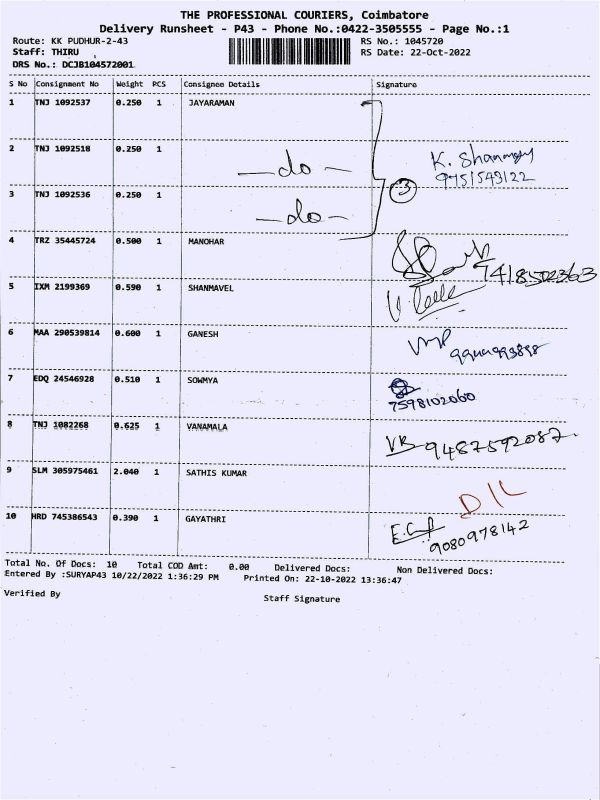 THE PROFESSIONAL COURIERS, Coimbatore
Delivery Runsheet - P43 - Phone No.:0422-3505555 - Page No.:1
Route: KK PUDHUR-2-43 RS No.: 1045720
Staff: THIRU RS Date: 22-Oct-2022
DRS No.: DCJB104572001
S No Consignment No Weight PCS Consignee Details Signature
1 TNJ 1092537 0.250 1 JAYARAMAN
2 TNJ 1092518 0.250 1 —do— K. Shanmugam
9751543122
3 TNJ 1092536 0.250 1 —do— 3
4 TRZ 35445724 0.500 1 MANOHAR 7418502363
5 IXM 2199369 0.590 1 SHANMAVEL
6 MAA 290539814 0.600 1 GANESH
7 EDQ 24546928 0.510 1 SOWMYA 7598102060
8 TNJ 1082268 0.625 1 VANAMALA VB 9487592087.
9 SLM 305975461 2.040 1 SATHIS KUMAR D/L
10 HRD 745386543 0.390 1 GAYATHRI 9080978142
Total No. Of Docs: 10 Total COD Amt: 0.00 Delivered Docs: Non Delivered Docs:
Entered By :SURYAP43 10/22/2022 1:36:29 PM Printed On: 22-10-2022 13:36:47
Verified By Staff Signature